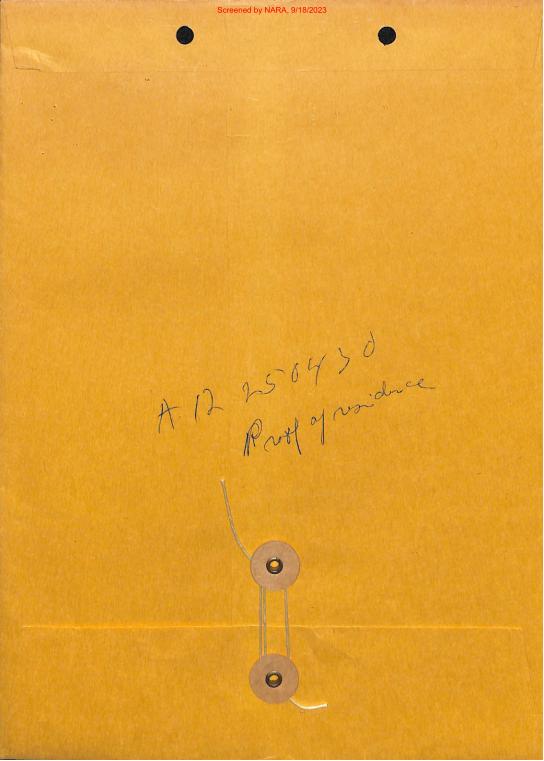 Screened by NARA, 9/18/2023
A. 12 250430
Proof of residence